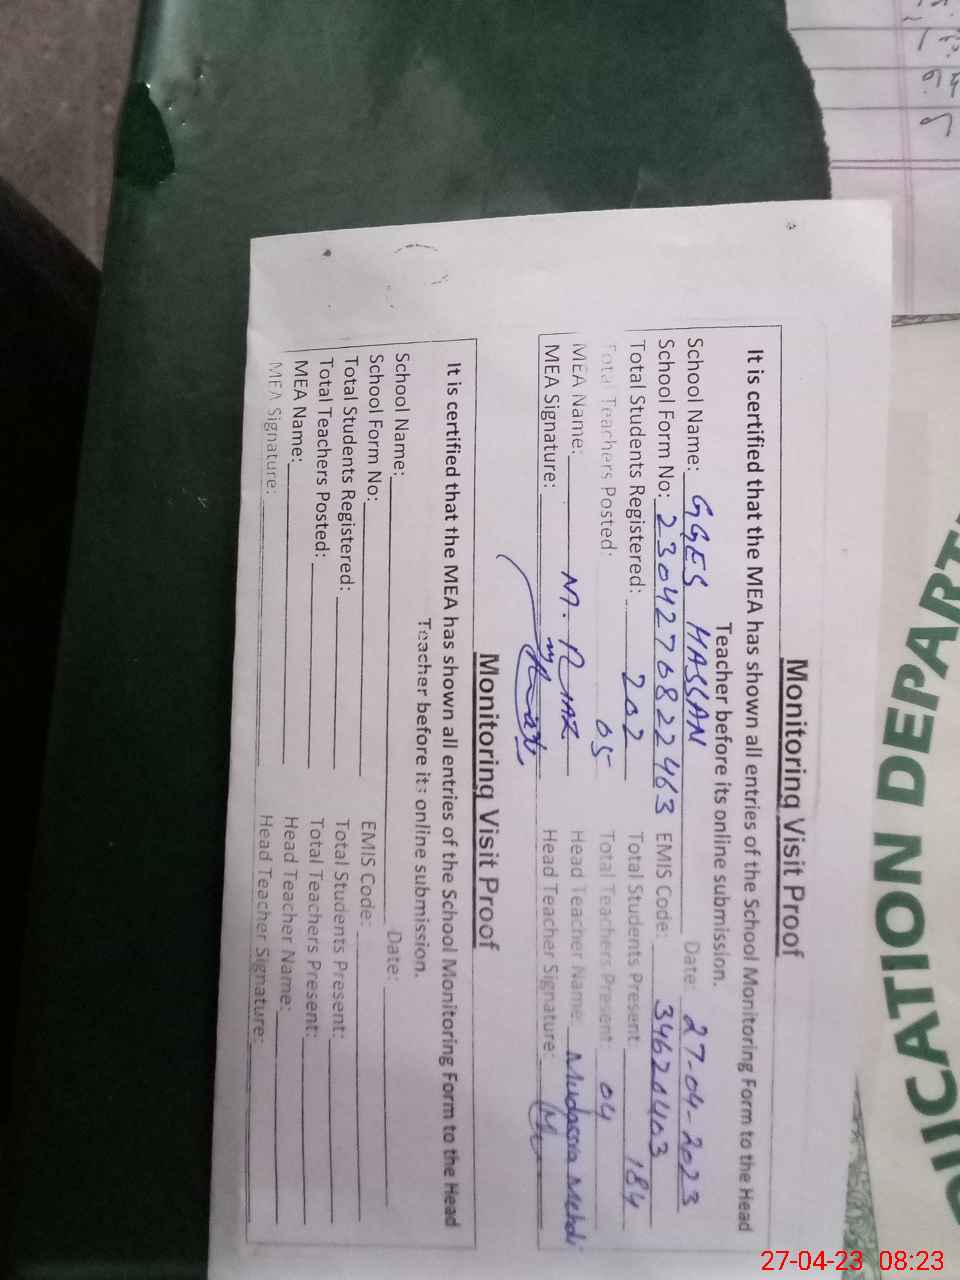 Monitoring Visit Proof
It is certified that the MEA has shown all entries of the School Monitoring Form to the Head
Teacher before its online submission.
School Name: GGES HASSAN Date: 27-04-2023
School Form No: 23042706822463 EMIS Code: 34620403
Total Students Registered: 202 Total Students Present: 184
Total Teachers Posted: 05 Total Teachers Present: 04
MEA Name: M. RIAZ Head Teacher Name: Mudassra Mehdi
MEA Signature: Head Teacher Signature:
Monitoring Visit Proof
It is certified that the MEA has shown all entries of the School Monitoring Form to the Head
Teacher before its online submission.
School Name: Date:
School Form No: EMIS Code:
Total Students Registered: Total Students Present:
Total Teachers Posted: Total Teachers Present:
MEA Name: Head Teacher Name:
MEA Signature: Head Teacher Signature:
UCATION DEPART
27-04-23 08:23